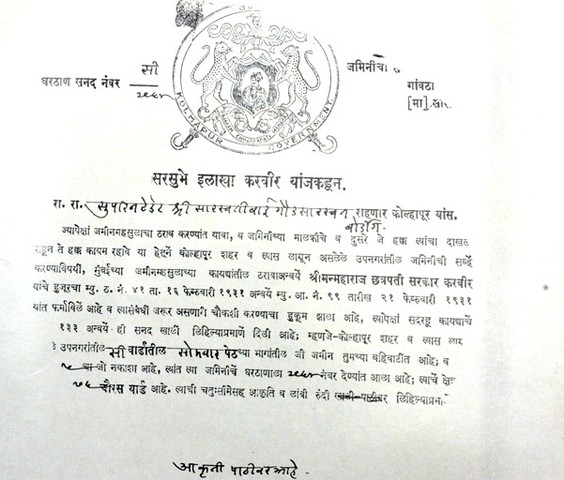 सी
घरठाण सनद नंबर
जमिनीचा
गांवठा
[मा]
KOLHAPUR GOVERNMENT
सरसुभे इलाखा करवीर यांजकडून.
रा. रा. सुपरिनटेंडेंट श्री सारस्वतीबाई गौडसारस्वत राहणार कोल्हापूर यांस.
बोर्डींग
ज्यापेक्षां जमीनमहसुलाचा ठराव करण्यांत यावा, व जमिनीच्या मालकीचे व दुसरे जे हक्क त्यांचा दाखल
राहून ते हक्क कायम रहावे या हेतूनें कोल्हापूर शहर व त्यास लागून असलेले उपनगरांतील जमिनीची सर्व्हे
करण्याविषयीं, मुंबईच्या जमीनमहसुलाच्या कायद्यांतील ठरावाअन्वयें श्रीमन्महाराज छत्रपती सरकार करवीर
यांचे हुजूरचा म्यु. ठ. नं. ४१ ता. १६ फेब्रुवारी १९३१ अन्वयें म्यु. आ. नं. ९९ तारीख २१ फेब्रुवारी १९३१
यांत फर्माविलें आहे व त्यासंबंधीं जरूर असणारी चौकशी करण्याचा हुकूम झाला आहे, त्यापेक्षां सदरहू कायद्याचे
१३३ अन्वयें ही सनद खालीं लिहिल्याप्रमाणें दिली आहे; म्हणजे-कोल्हापूर शहर व त्यास लाग
उपनगरांतील सी वार्डांतील सोमवार पेठच्या भागांतील जी जमीन तुमच्या वहिवाटींत आहे; व
चा जो नकाशा आहे, त्यांत त्या जमिनीचें घरठाणाला नंबर देण्यांत आला आहे; त्याचें क्षे
चौरस यार्ड आहे. त्याची चतुःसीमेसह आकृति व लांबी रुंदी खालीं पाठीवर लिहिल्याप्रमा
आकृती पाठीवर आहे.